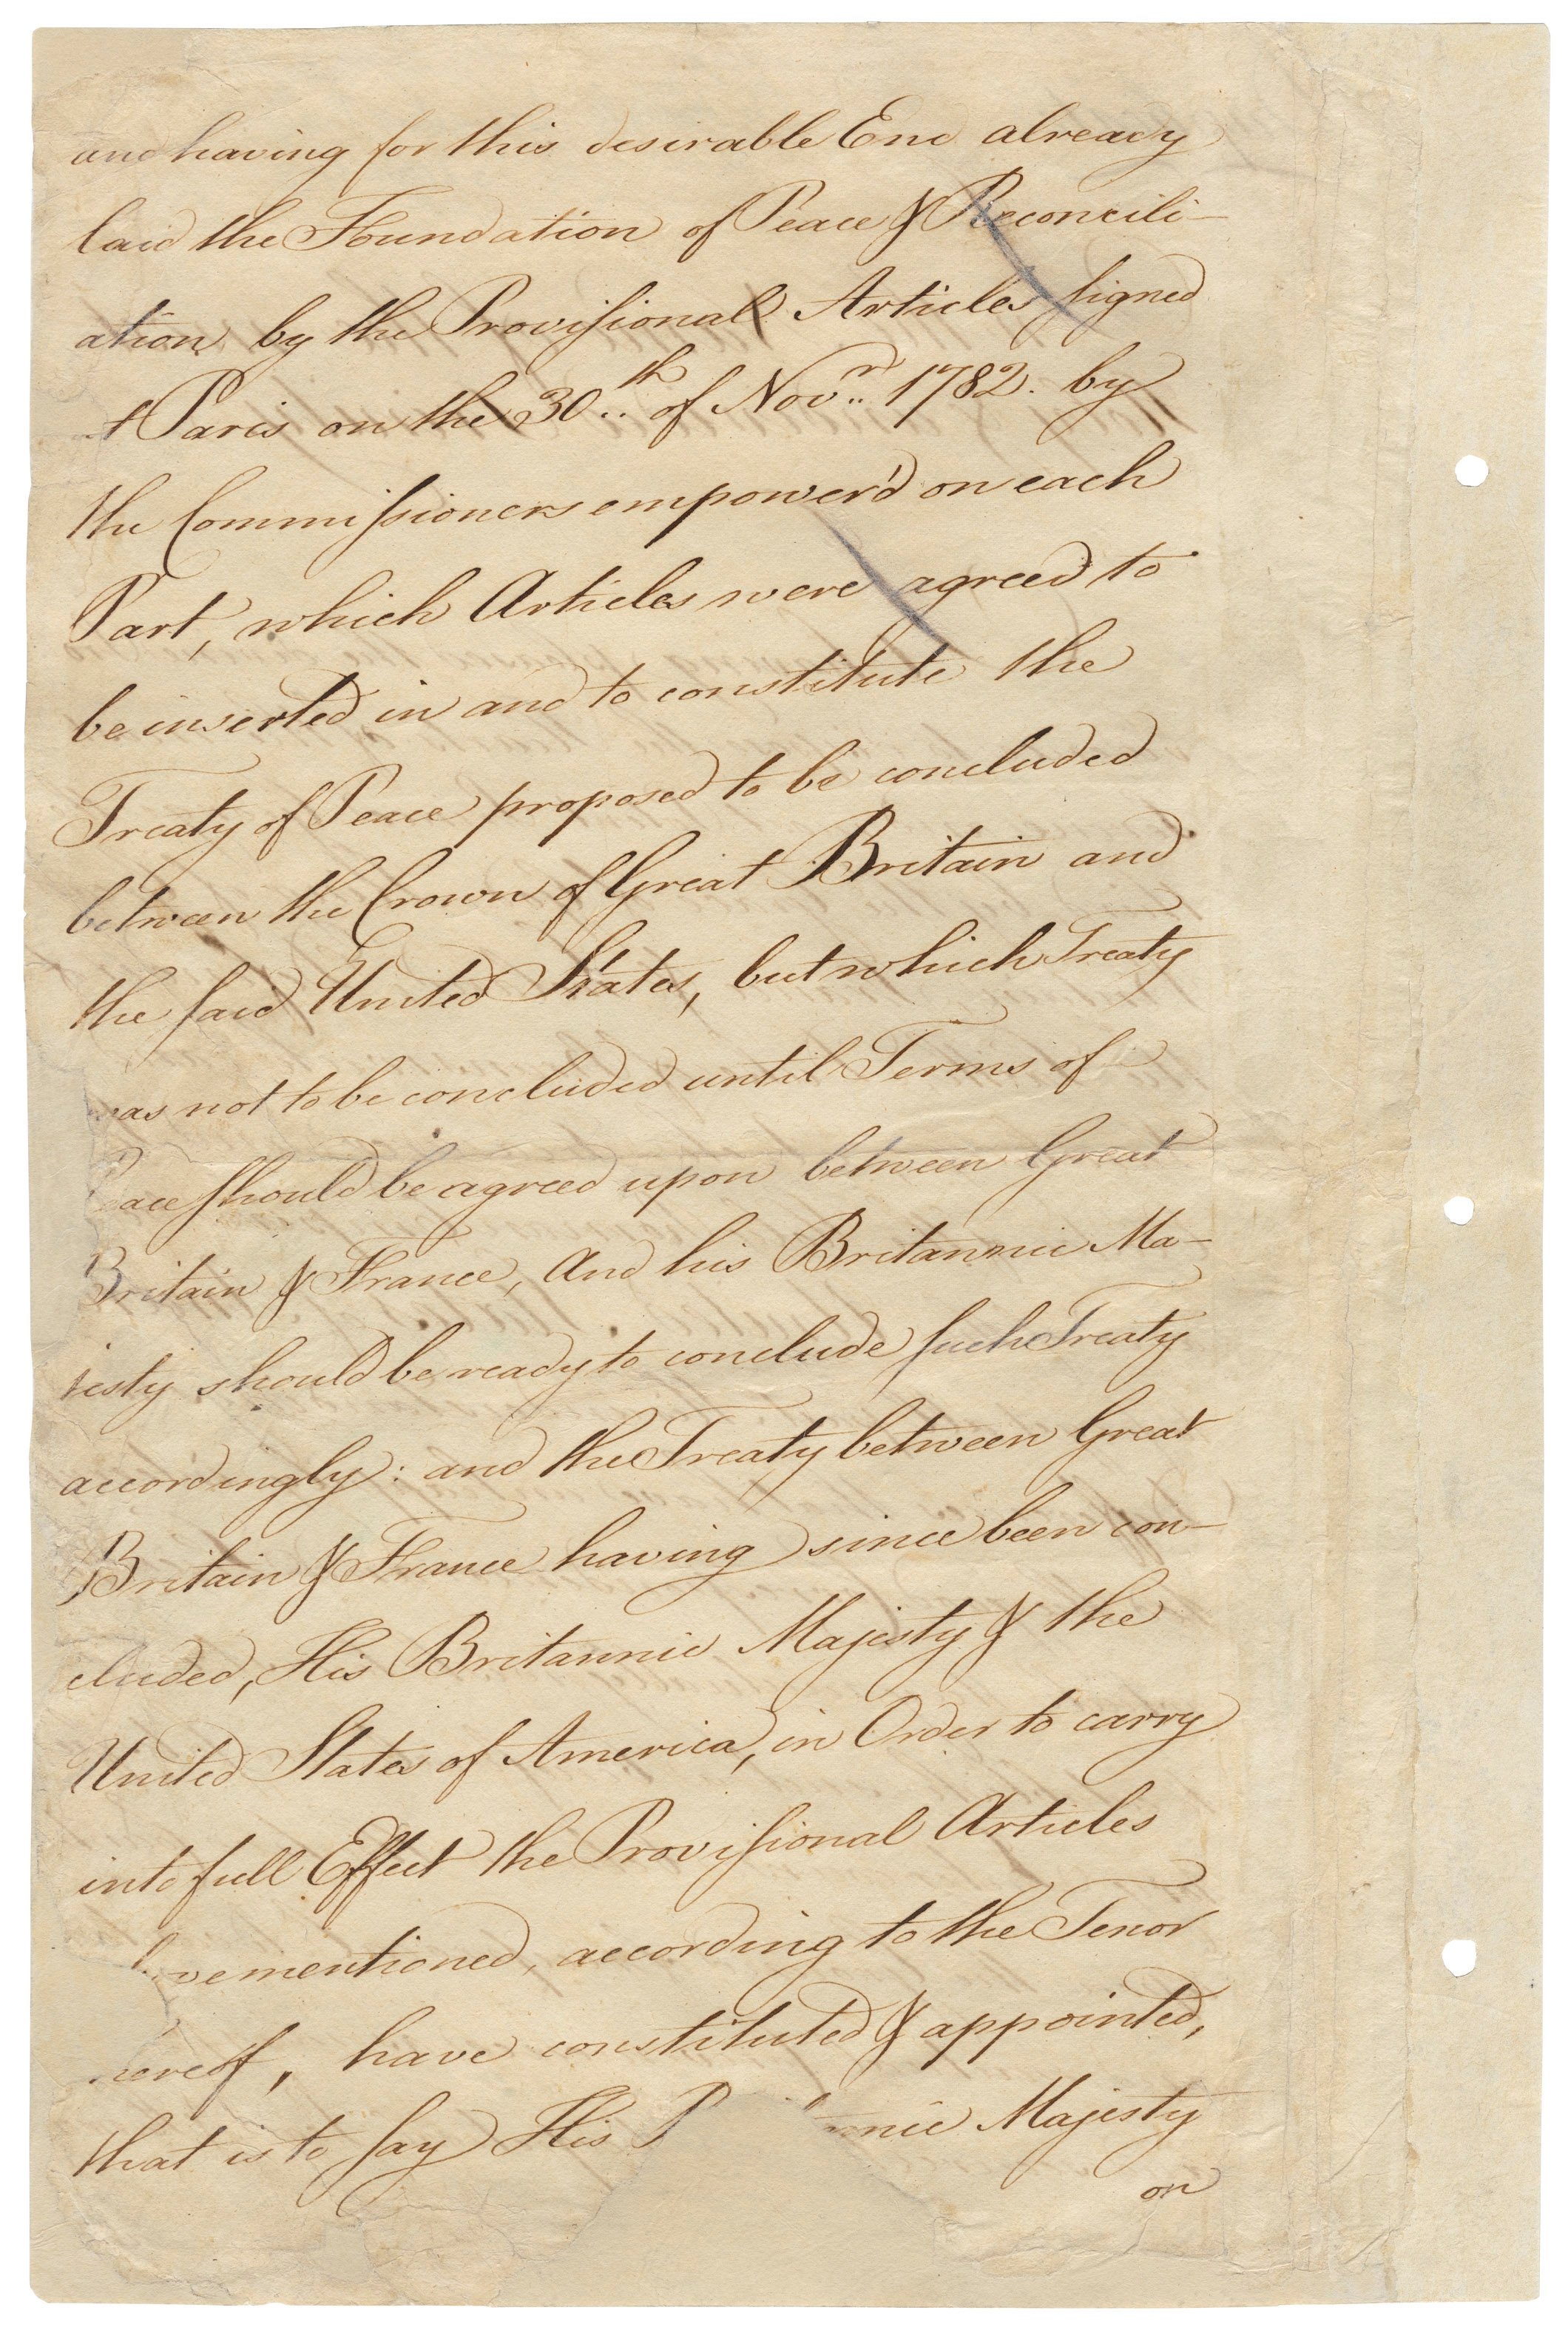 and having for this desirable End already
laid the Foundation of Peace & Reconcili-
ation by the Provisional Articles signed
at Paris on the 30th of Novr 1782. by
the Commissioners empower'd on each
Part, which Articles were agreed to
be inserted in and to constitute the
Treaty of Peace proposed to be concluded
between the Crown of Great Britain and
the said United States, but which Treaty
was not to be concluded until Terms of
Peace should be agreed upon between Great
Britain & France, And his Britannic Ma-
jesty should be ready to conclude such Treaty
accordingly: and the Treaty between Great
Britain & France having since been con-
cluded, His Britannic Majesty & the
United States of America, in Order to carry
into full Effect the Provisional Articles
mentioned, according to the Tenor
hereof, have constituted & appointed,
that is to say His Majesty
on